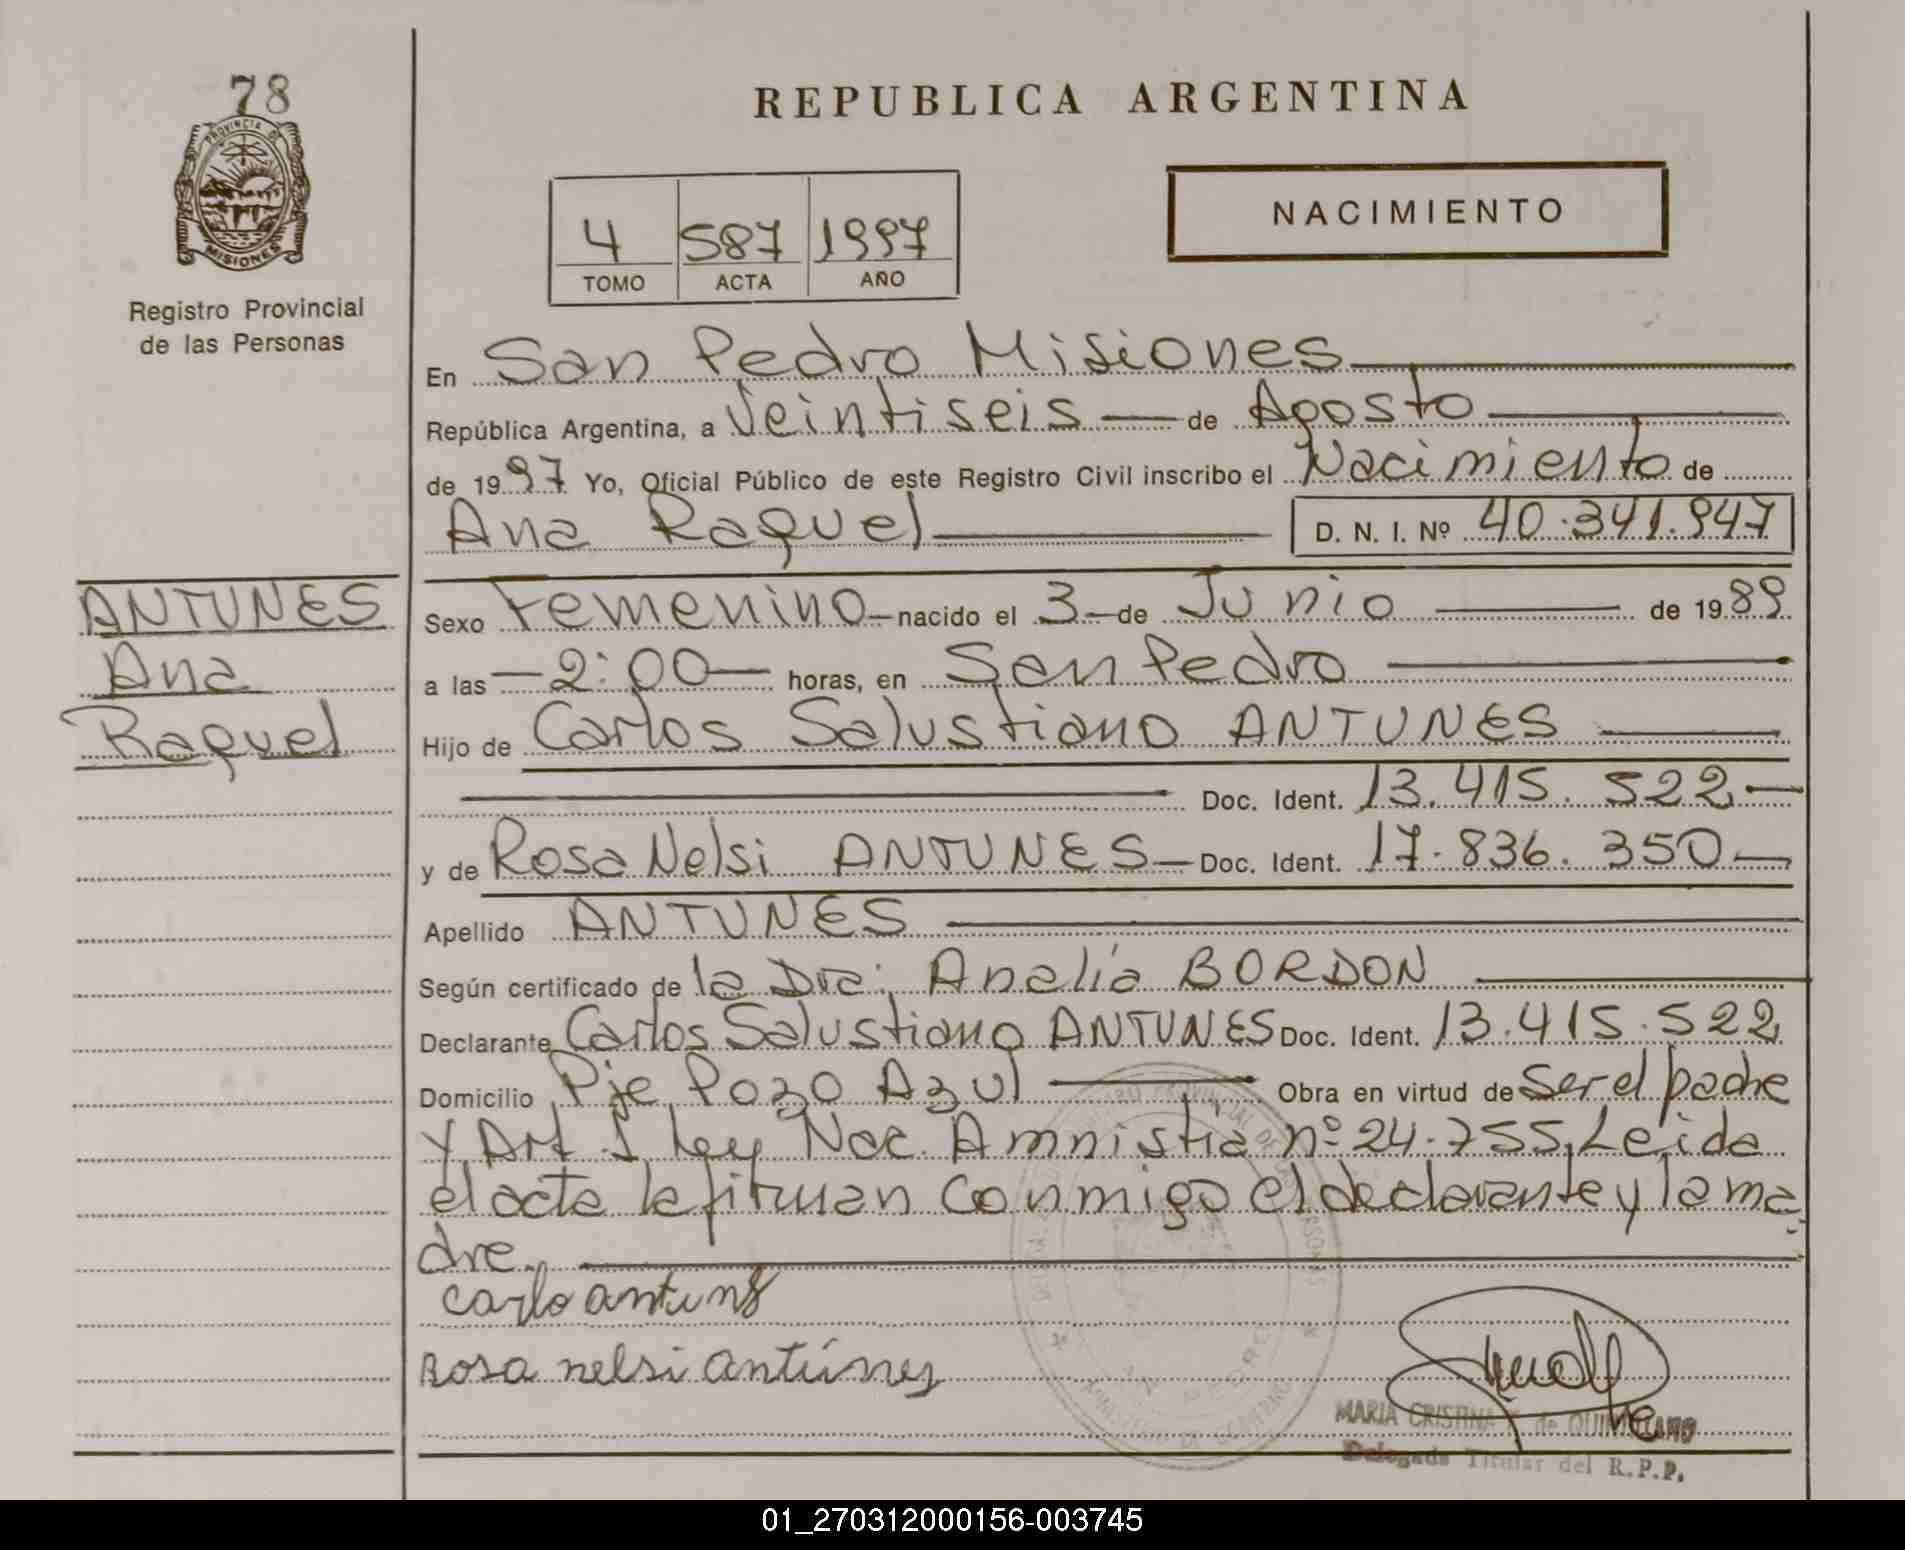 78
PROVINCIA DE
MISIONES
Registro Provincial
de las Personas
REPUBLICA ARGENTINA
4 587 1997
TOMO ACTA AÑO
NACIMIENTO
En San Pedro Misiones
República Argentina, a Veintiseis de Agosto
de 1997 Yo, Oficial Público de este Registro Civil inscribo el Nacimiento de
Ana Raquel D. N. I. Nº 40.341.947
ANTUNES
Ana
Raquel
Sexo Femenino nacido el 3 de Junio de 1989
a las 2:00 horas, en San Pedro
Hijo de Carlos Salustiano ANTUNES
Doc. Ident. 13.415.522
y de Rosa Nelsi ANTUNES Doc. Ident. 17.836.350
Apellido ANTUNES
Según certificado de la Dra. Analía BORDON
Declarante Carlos Salustiano ANTUNES Doc. Ident. 13.415.522
Domicilio Pje Pozo Azul Obra en virtud de Ser el padre
y Art. 1 Ley Nac. Amnistia nº 24.755, Leida
el acta la firman conmigo el declarante y la ma
dre.
carlo antuns
Rosa nelsi antúnes
MARIA CRISTINA de
Delegada Titular del R.P.P.
01_270312000156-003745